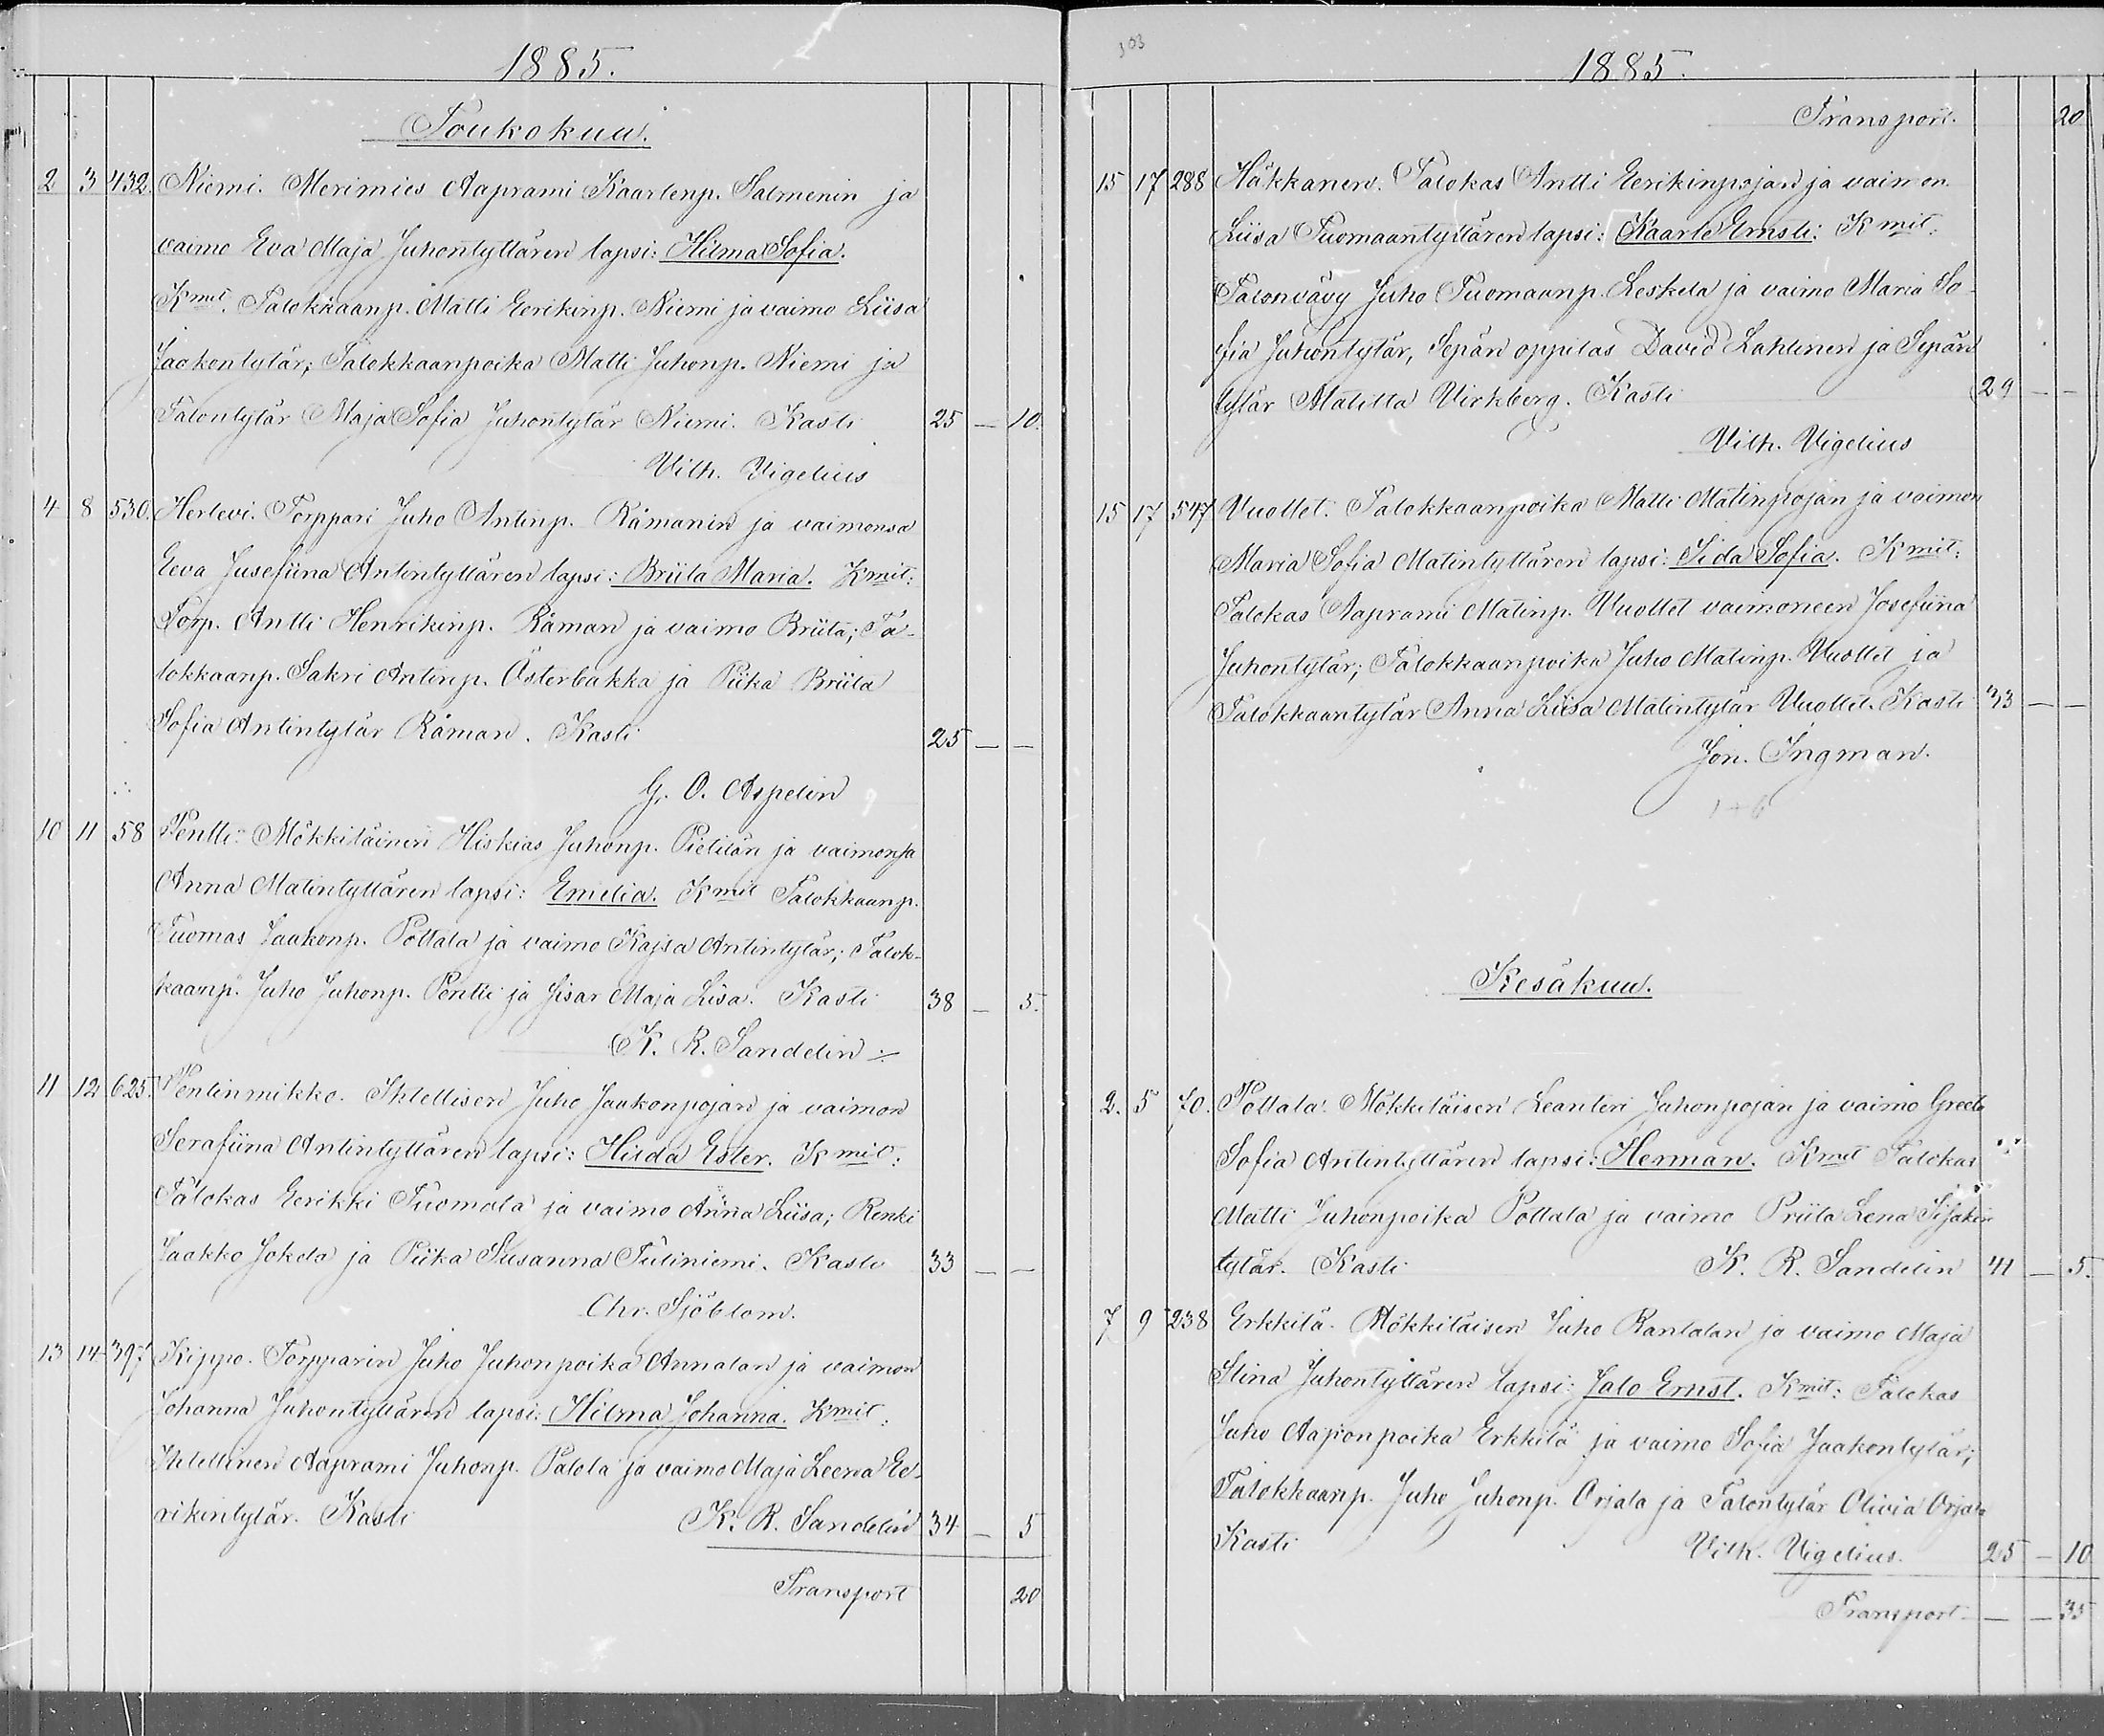 1885.
Toukokuu.
2 3 432. Niemi. Merimies Aaprami Kaarlenp. Salmenin ja
vaimo Eva Maja Juhontyttären lapsi: Hilma Sofia.
Kmit. Talokkaanp. Matti Eerikinp. Niemi ja vaimo Liisa
Jaakontytär; Talokkaanpoika Matti Juhonp. Niemi ja
Talontytär Maja Sofia Juhontytär Niemi. Kasti 25 — 10.
Vilh. Vigelius
4 8 530. Herlevi. Torppari Juho Antinp. Råmanin ja vaimonsa
Eeva Jusefiina Antintyttären lapsi: Briita Maria. Kmit:
Torp. Antti Henrikinp. Råman ja vaimo Briita; Ta-
lokkaanp. Sakri Antinp. Österbakka ja Piika Briita
Sofia Antintytär Råman. Kasti 25 — —
G. O. Aspelin
10 11 58 Pentti. Mökkiläinen Hiskias Juhonp. Pietilän ja vaimonsa
Anna Matintyttären lapsi: Emilia. Kmit Talokkaanp.
Tuomas Jaakonp. Pottala ja vaimo Kajsa Antintytär; Talok-
kaanp. Juho Juhonp. Pentti ja sisar Maja Liisa. Kasti 38 — 5.
K. R. Sandelin
11 12 625. Pentinmikko. Ihtellisen Juho Jaakonpojan ja vaimon
Serafiina Antintyttären lapsi: Hilda Ester. Kmit:
Talokas Eerikki Tuomola ja vaimo Anna Liisa; Renki
Jaakko Jokela ja Piika Susanna Tuliniemi. Kasti 33 — —
Chr. Sjöblom.
13 14 397 Kippo. Torpparin Juho Juhonpoika Annalan ja vaimon
Johanna Juhontyttären lapsi: Hilma Johanna. Kmit:
Ihtellinen Aaprami Juhonp. Palola ja vaimo Maja Leena Ee-
rikintytär. Kasti K. R. Sandelin 34 — 5
Transport 20
103
1885.
Transport. 20
15 17 288 Häkkänen. Talokas Antti Eerikinpojan ja vaimon
Liisa Tuomaantyttären lapsi: Kaarle Ernsti: Kmit:
Talonvävy Juho Tuomaanp. Leskelä ja vaimo Maria So-
fia Juhontytär, Sepän oppilas David Lahtinen ja Sepän
tytär Matilta Virkberg. Kasti 29 — —
Vilh. Vigelius
15 17 547 Vuollet. Talokkaanpoika Matti Matinpojan ja vaimon
Maria Sofia Matintyttären lapsi: Iida Sofia. Kmit:
Talokas Aaprami Matinp. Vuollet vaimoneen Josefiina
Juhontytär; Talokkaanpoika Juho Matinp. Vuollet ja
Talokkaantytär Anna Liisa Matintytär Vuollet. Kasti 33 — —
Jon. Ingman.
1+6
Kesäkuu.
2. 5 70. Pottala. Mökkiläisen Leanteri Juhonpojan ja vaimo Greeta
Sofia Antintyttären lapsi: Herman. Kmit Talokas
Matti Juhonpoika Pottala ja vaimo Priita Lena
tytär. Kasti K. R. Sandelin 41 — 5.
7 9 238 Erkkilä. Mökkiläisen Juho Rantalan ja vaimo Maja
Stina Juhontyttären lapsi: Jalo Ernst. Kmit: Talokas
Juho Aaponpoika Erkkilä ja vaimo Sofia Jaakontytär;
Talokkaanp. Juho Juhonp. Orjala ja Talontytär Olivia Orjala
Kasti Vilh. Vigelius. 25 — 10
Transport — — 35